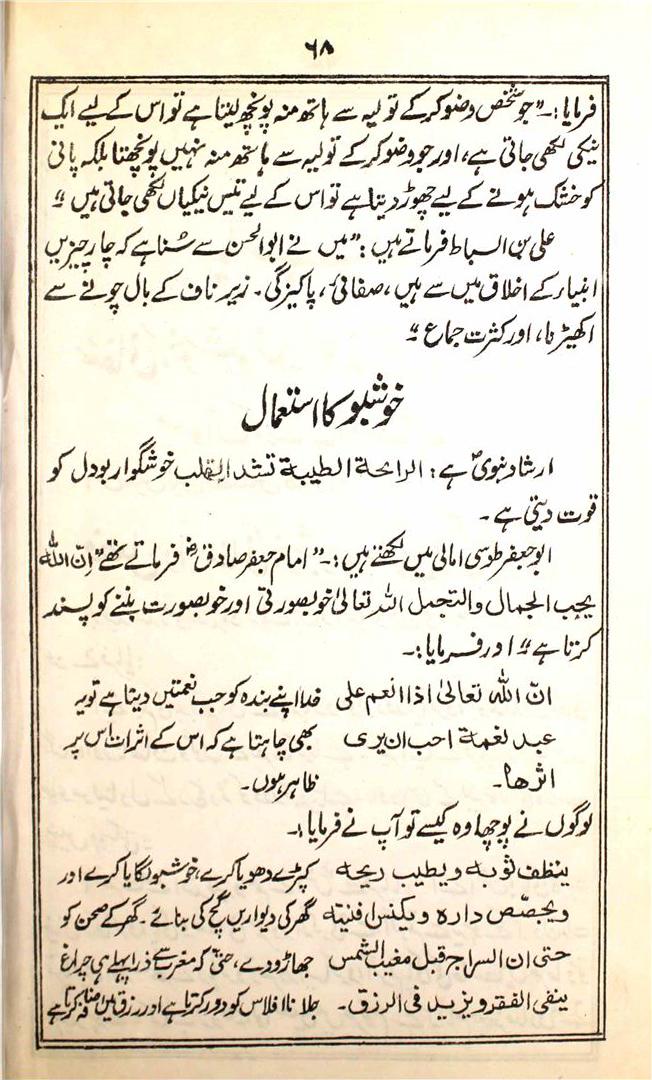 ۶۸
فرمایا:۔ ”جو شخص وضو کر کے تولیہ سے ہاتھ منہ پونچھ لیتا ہے تو اس کے لیے ایک
نیکی لکھی جاتی ہے، اور جو وضو کر کے تولیہ سے ہاتھ منہ نہیں پونچھتا بلکہ پانی
کو خشک ہونے کے لیے چھوڑ دیتا ہے تو اس کے لیے تیس نیکیاں لکھی جاتی ہیں“
علی بن السباط فرماتے ہیں: ”میں نے ابوالحسن سے سُنا ہے کہ چار چیزیں
انبیاء کے اخلاق میں سے ہیں، صفائی، پاکیزگی۔ زیر ناف کے بال چونے سے
اکھیڑنا، اور کثرت جماع“
خوشبو کا استعمال
ارشاد نبوی ہے: الرائحة الطيبة تشد القلب خوشگوار بو دل کو
قوت دیتی ہے۔
ابو جعفر طوسی امالی میں لکھتے ہیں:۔ ”امام جعفر صادقؓ فرماتے تھے“ اِنّ اللّٰہ
یحب الجمال والتجمل اللہ تعالیٰ خوبصورتی اور خوبصورت بننے کو پسند
کرتا ہے“ اور فرمایا:۔
انّ اللّٰہ تعالیٰ اذا انعم علی خدا اپنے بندہ کو جب نعمتیں دیتا ہے تو یہ
عبد نعمة احب ان یری بھی چاہتا ہے کہ اس کے اثرات اس پر
اثرھا۔ ظاہر ہوں۔
لوگوں نے پوچھا وہ کیسے تو آپ نے فرمایا:۔
ینظف ثوبه ویطیب ریحه کپڑے دھویا کرے، خوشبو لگایا کرے اور
ویجصّص داره ویکنس افنیته گھر کی دیواریں گچ کی بنائے۔ گھر کے صحن کو
حتی ان السراج قبل مغیب الشمس جھاڑو دے، حتیٰ کہ مغرب سے ذرا پہلے ہی چراغ
ینفی الفقر ویزید فی الرزق۔ جلانا افلاس کو دور کرتا ہے اور رزق میں اضافہ کرتا ہے